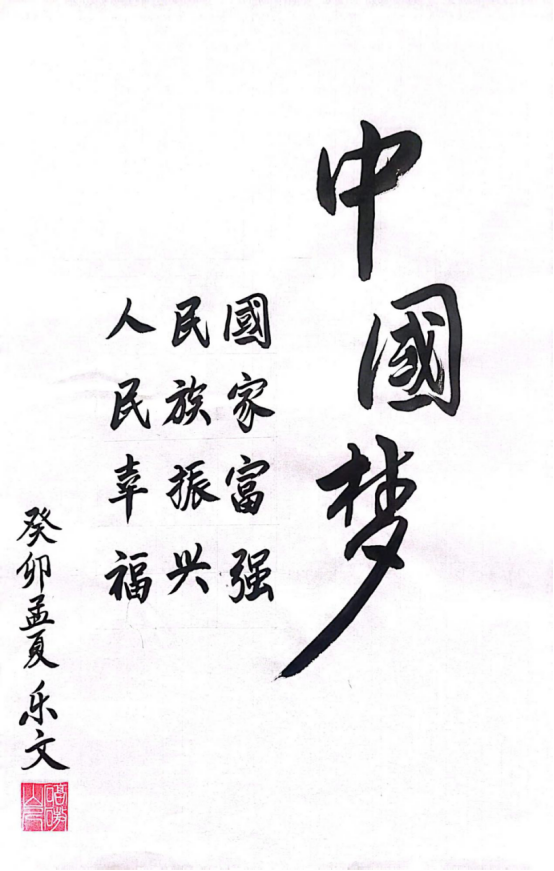 中國梦
國家富强
民族振兴
人民幸福
癸卯孟夏 乐文